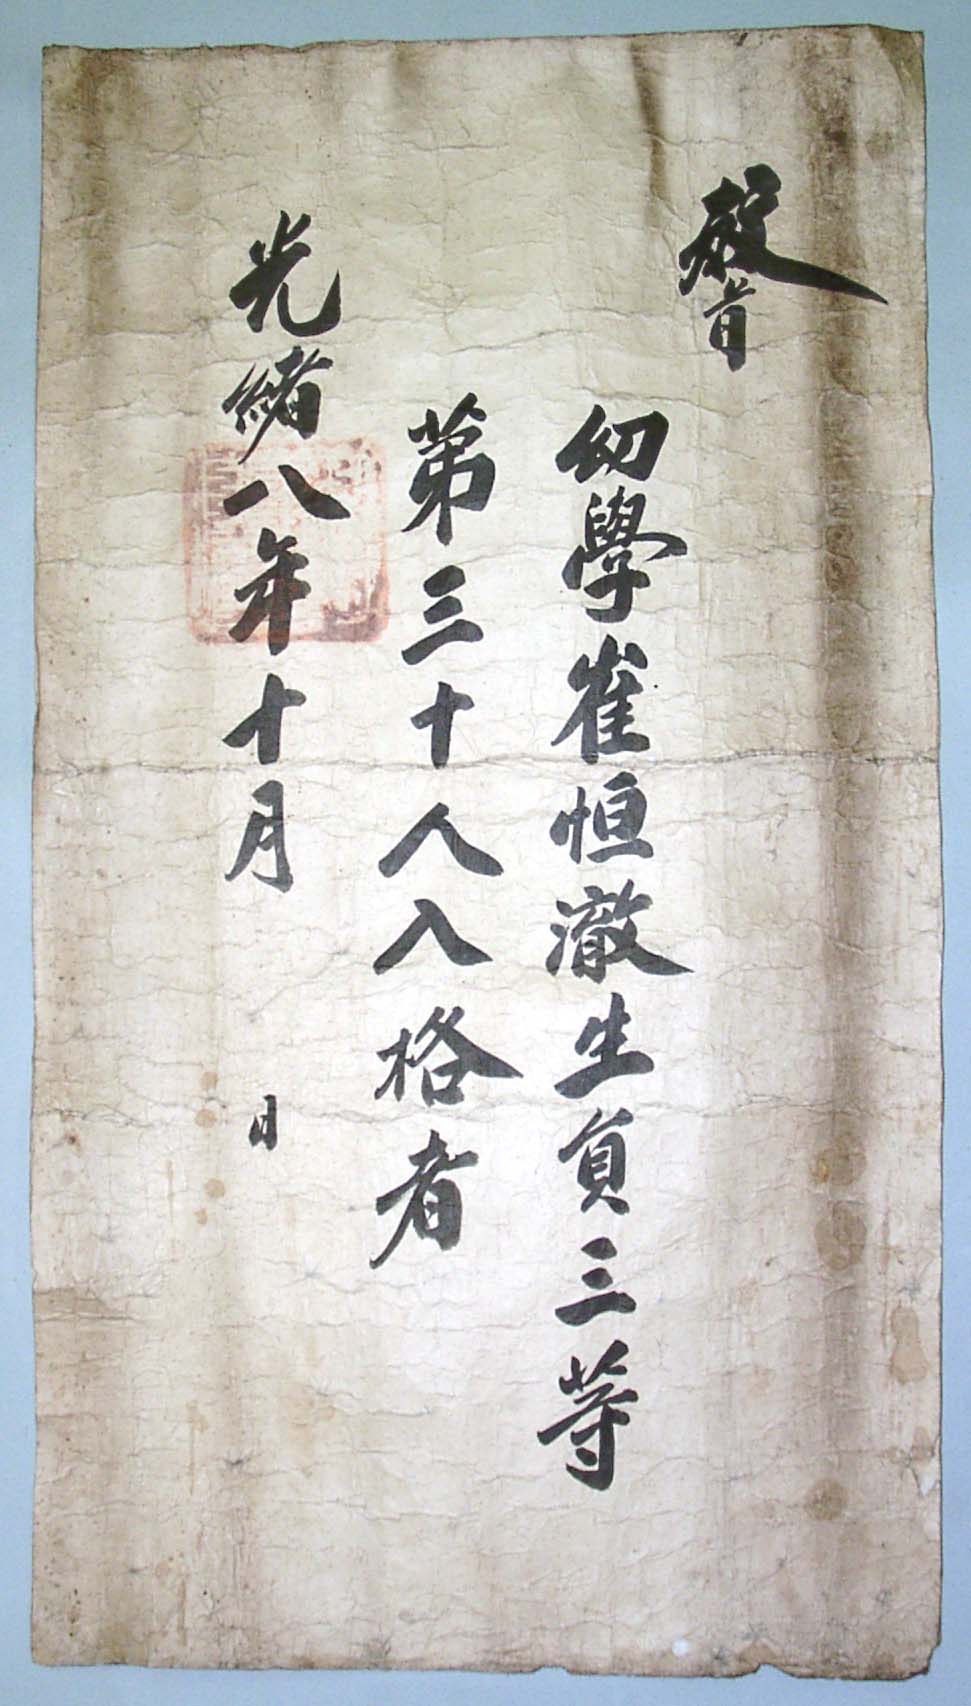 敎旨
幼學崔恒澈生員三等
第三十人入格者
光緖八年十月 日